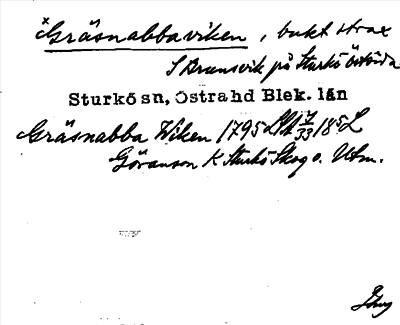 ×Gräsnabbaviken, bukt strax
S Brunsvik på Sturkö östsida
Sturkö sn, Östra hd Blek. län
Gräsnabba Wiken 1795
Göranson K Sturkö Skog o. Utm.